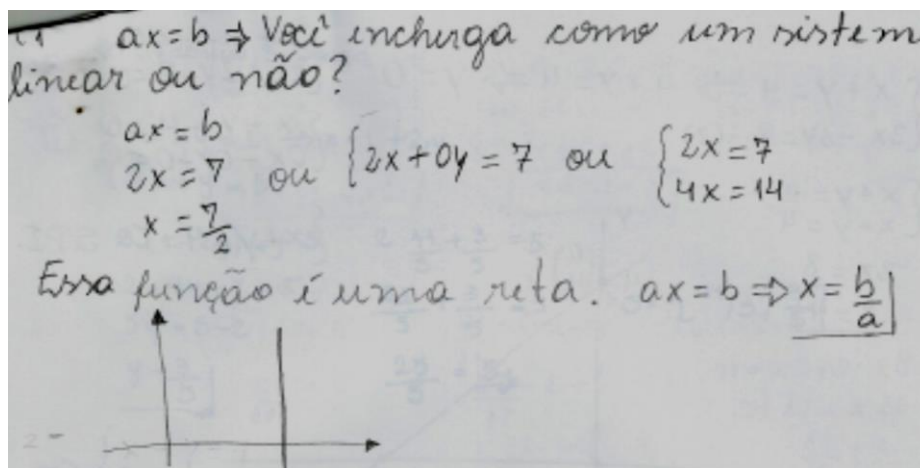 ax = b ⇒ Você inchurga como um sistem
linear ou não?
ax = b
2x = 7 ou { 2x + 0y = 7 ou { 2x = 7
4x = 14
x = 7/2
Essa função é uma reta. ax = b ⇒ x = b/a